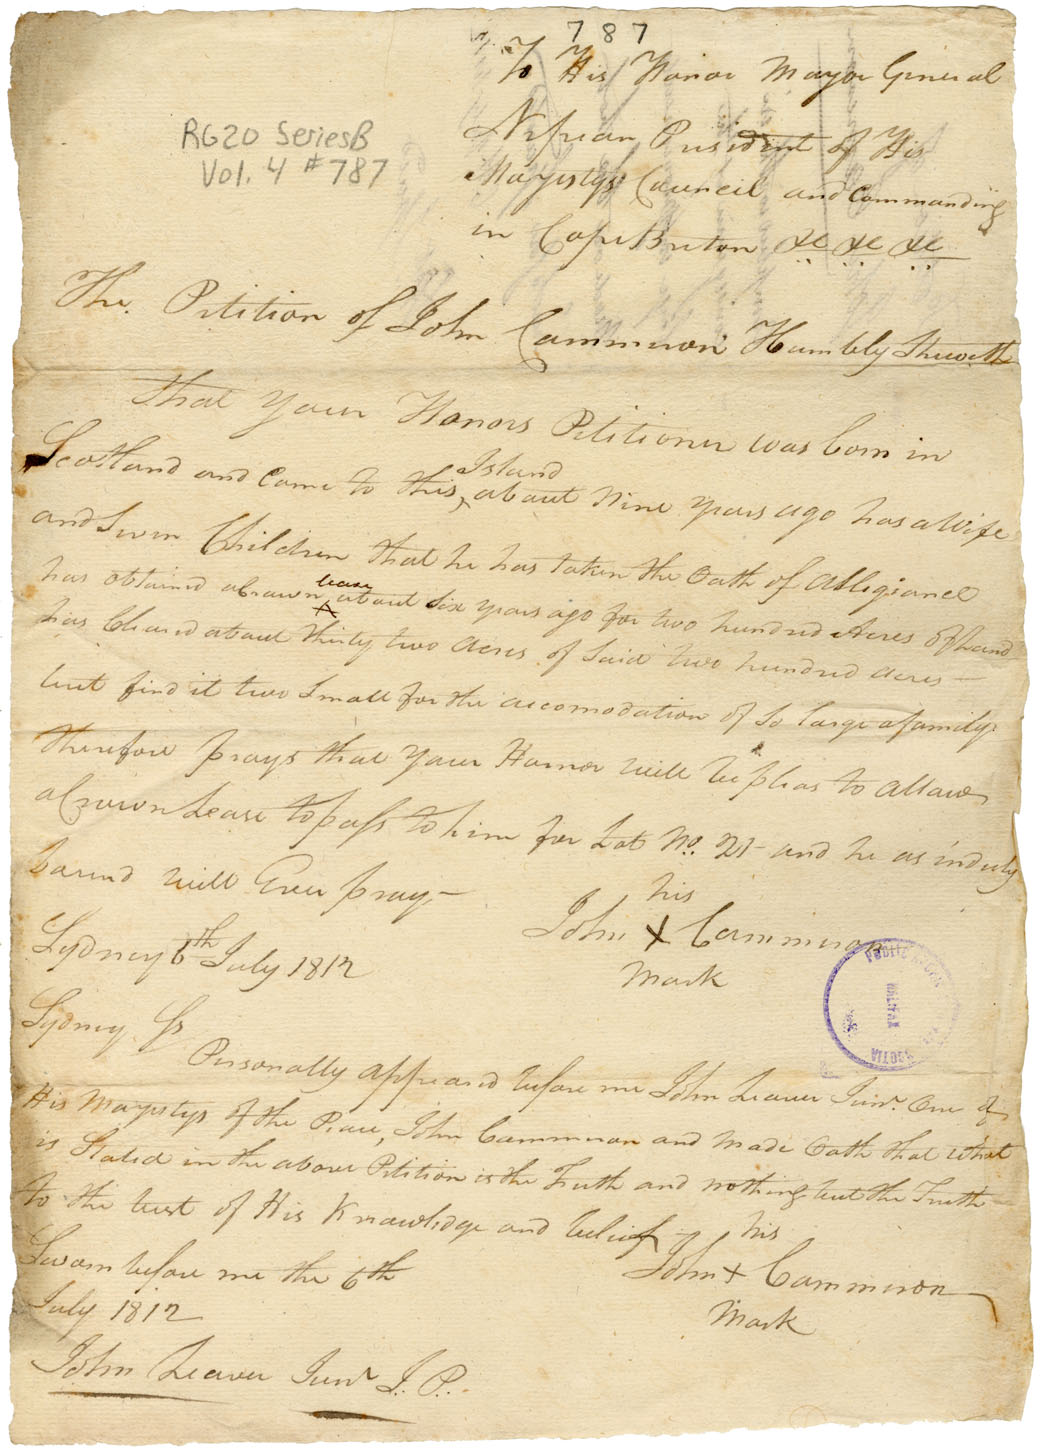 787
To His Honor Mayor General
Nepean President of His
RG20 Series B
Vol. 4 #787
Mayestys Council and Commanding
in Cape Breton &c &c &c
The Petition of John Cammeron Humbly Sheweth
That your Honors Petitioner was born in
Scotland and Came to this ^Island about Nine years ago has a Wife
and Seven Children that he has taken the Oath of Allegiance
has obtained a Crown ^lease about Six years ago for two hundred Acres of Land
has Cleared about thirty two Acres of Said two hundred acres —
but find it two Small for the accomodation of So large a family
therefore prays that your Honnor will be pleas to Allow
a Crown Lease to pass to him for Lot No. 21 — and he as in duty
bound will Ever pray —
his
John X Cammeron
Mark
Sydney 6th July 1812
Sydney Ss
Personally Appeared before me John Leaver Junr. One of
His Mayestys of the Peace, John Cammeron and Made Oath that What
is Stated in the above Petition is the Truth and nothing but the Truth —
to the best of His Knowledge and belief —
his
John + Cammeron
Mark
Sworn before me the 6th
July 1812
John Leaver Junr J. P.
PUBLIC
HALIFAX
SCOTIA